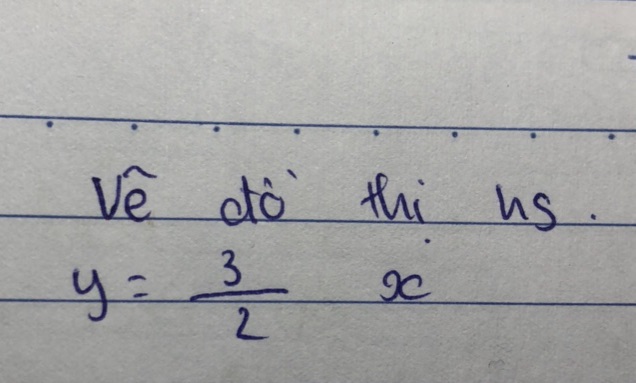 Vẽ đồ thị hs.
y = \frac{3}{2} x